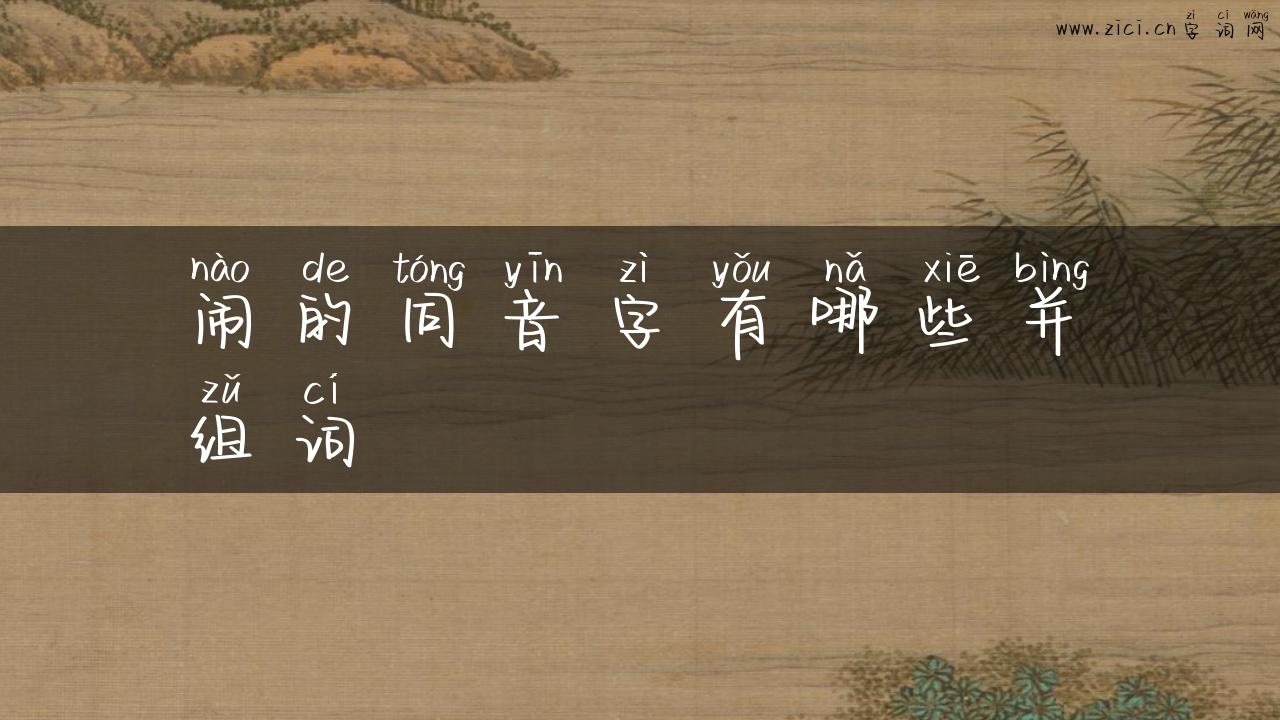 zì cí wǎng
www.zici.cn 字 词 网
nào de tóng yīn zì yǒu nǎ xiē bìng
闹 的 同 音 字 有 哪 些 并
zǔ cí
组 词